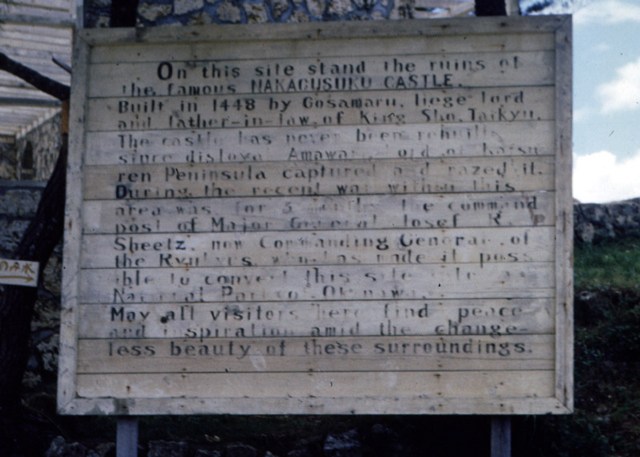 On this site stand the ruins of
the famous NAKAGUSUKU CASTLE.
Built in 1448 by Gosamaru, liege lord
and father-in-law of King Sho Taikyu.
The castle has never been rebuilt
since disloyal Amawari lord of Katsu-
ren Peninsula captured and razed it.
During the recent war within this
area was for 3 the command
post of Major General Josef R.
Sheetz, now Commanding General of
the Ryukyus who has made it pos-
ible to convert this site
National Park Okinawa.
May all visitors here find peace
and inspiration amid the change-
less beauty of these surroundings.